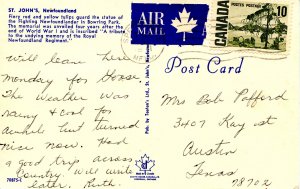 ST. JOHN'S, Newfoundland
Fiery red and yellow tulips guard the statue of
the Fighting Newfoundlander in Bowring Park.
The memorial was unveiled four years after the
end of World War I and is inscribed "A tribute
to the undying memory of the Royal
Newfoundland Regiment."
AIR
MAIL
CANADA
POSTES POSTAGE
10
Post Card
Will leave here
Monday for House
The Weather was
rainy & cool for
but turned
nice now. Had
a good trip across
Country. Will write
later, Ruth.
Mrs Bob Pafford
3407 Kay st
Austin
Texas
78702